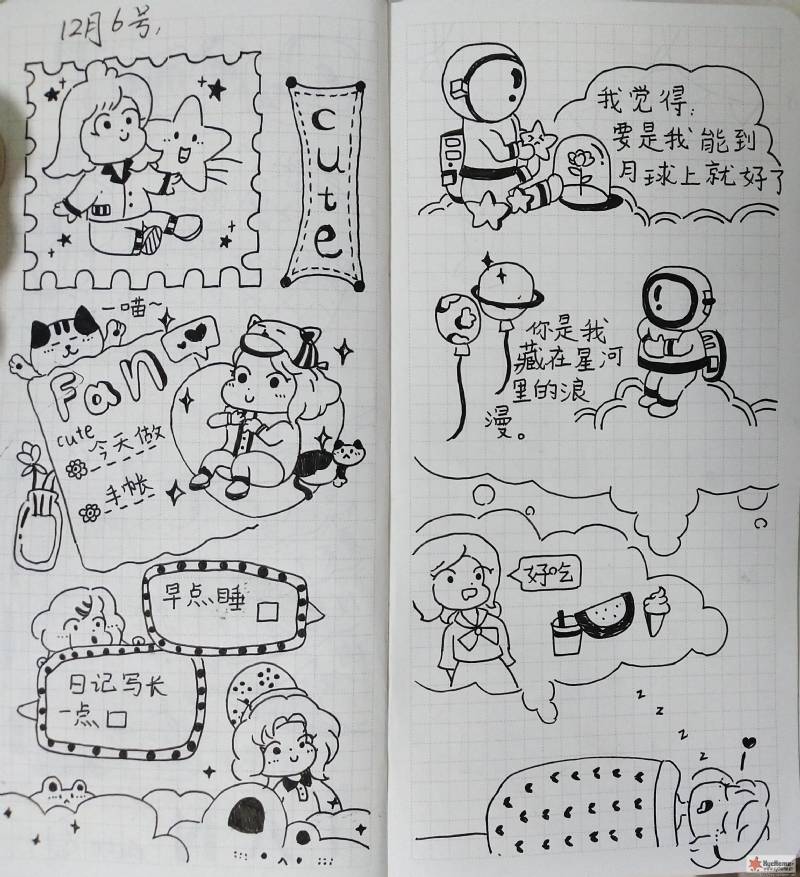 12月6号,
cute
一喵~
Fan
cute 今天做
手帐
早点睡
日记写长
一点
我觉得:
要是我能到
月球上就好了
你是我
藏在星河
里的浪
漫。
好吃
z
z
z
z